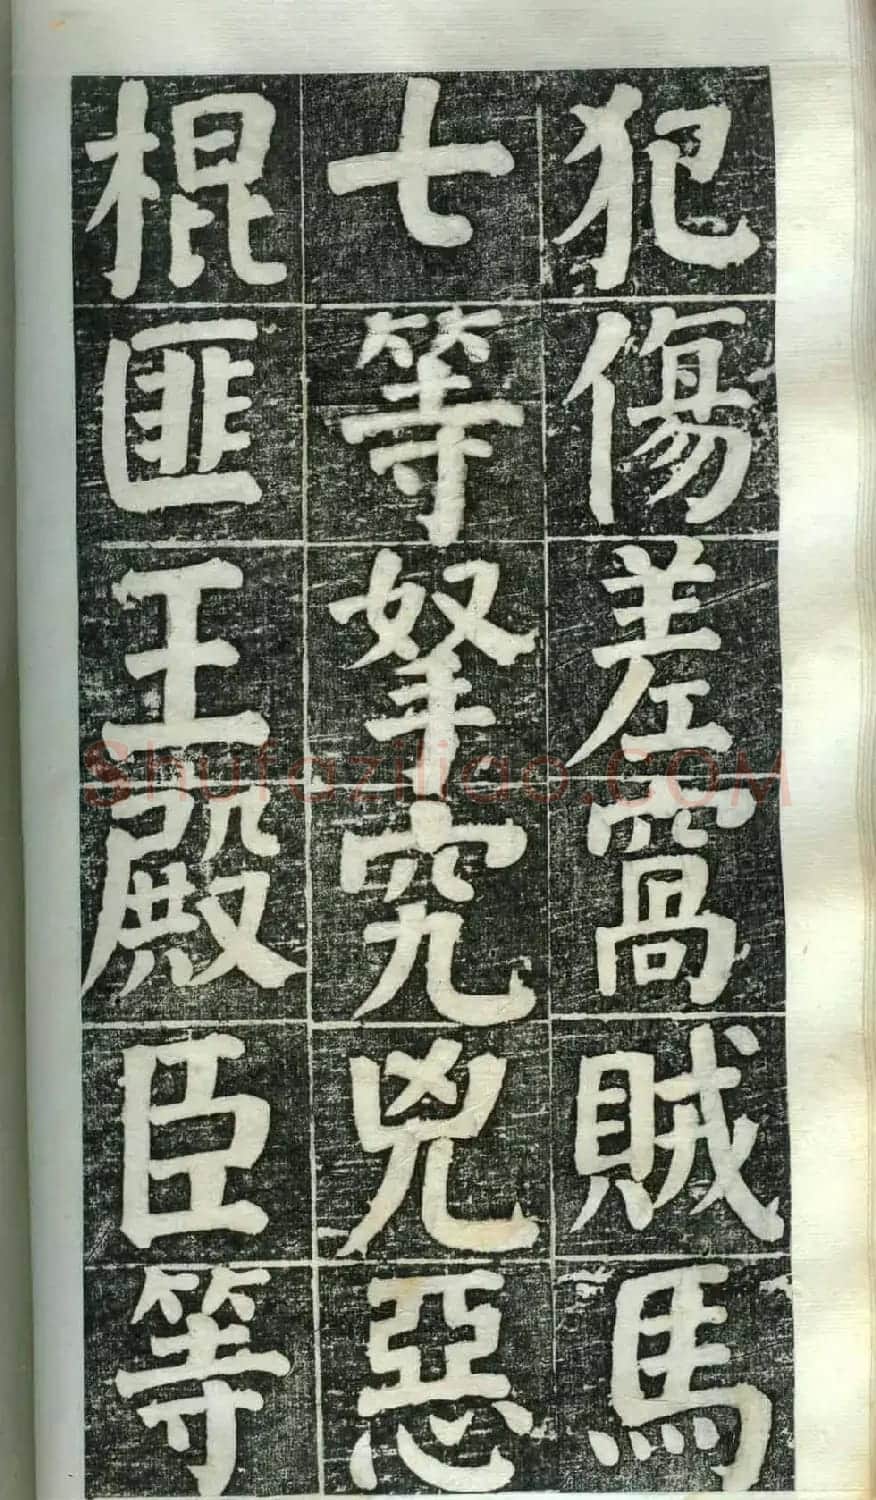 犯傷差窩賊馬
七等拏究兇惡
棍匪王殿臣等
Shufaziliao.COM